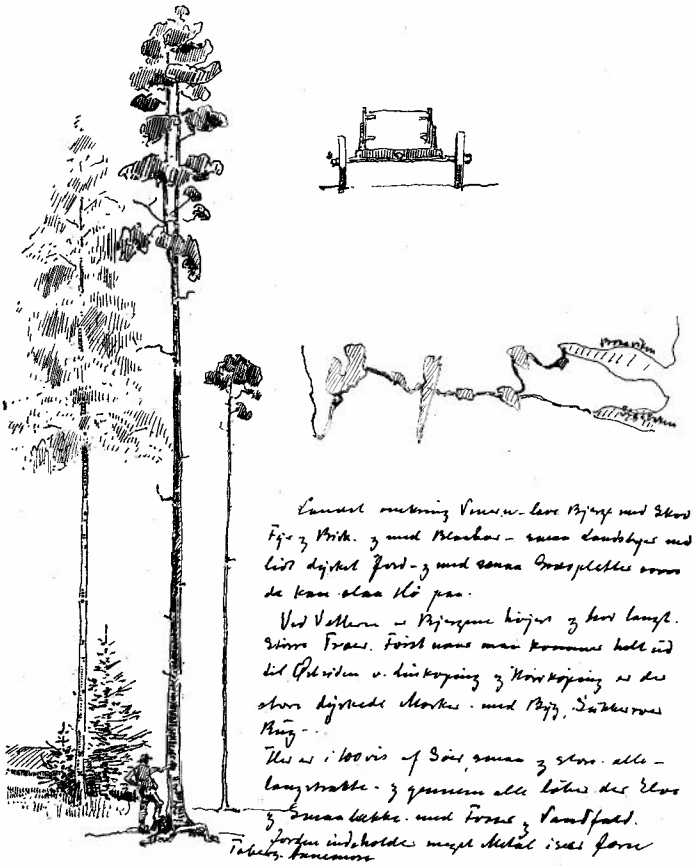 Landet omkring Venern - lave Bjerge med Skov
Fyr og Birk. og med Blaabær - smaa Landsbyer med
lidt dyrket Jord - og med smaa Græspletter hvor
de kan slaa Hø paa.
Ved Vettern er Bjergene højere og har langt
større Træer. Først naar man kommer helt ud
til Østsiden v. Linkøping og Norrköping er der
store dyrkede Marker - med Byg, Sukkerroer
Rug -
Her er i 100vis af Søer, smaa og store. alle -
langstrakte - og gennem alle løber der Elve
og Smaabække. med Fosser og Vandfald.
Jorden indeholder meget Metal især Jern
Taberg. Dannemora